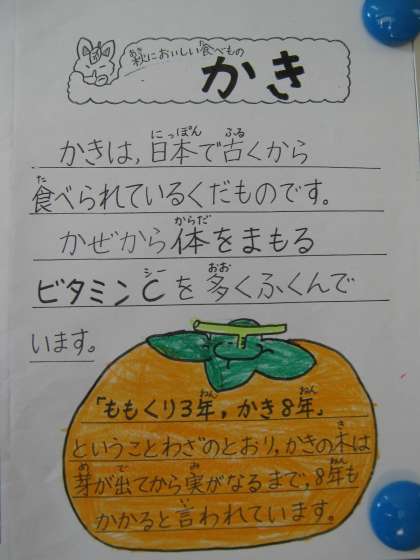 秋においしい食べもの
かき
かきは,日本で古くから
食べられているくだものです。
かぜから体をまもる
ビタミンCを多くふくんで
います。
「ももくり3年,かき8年」
ということわざのとおり,かきの木は
芽が出てから実がなるまで,8年も
かかると言われています。